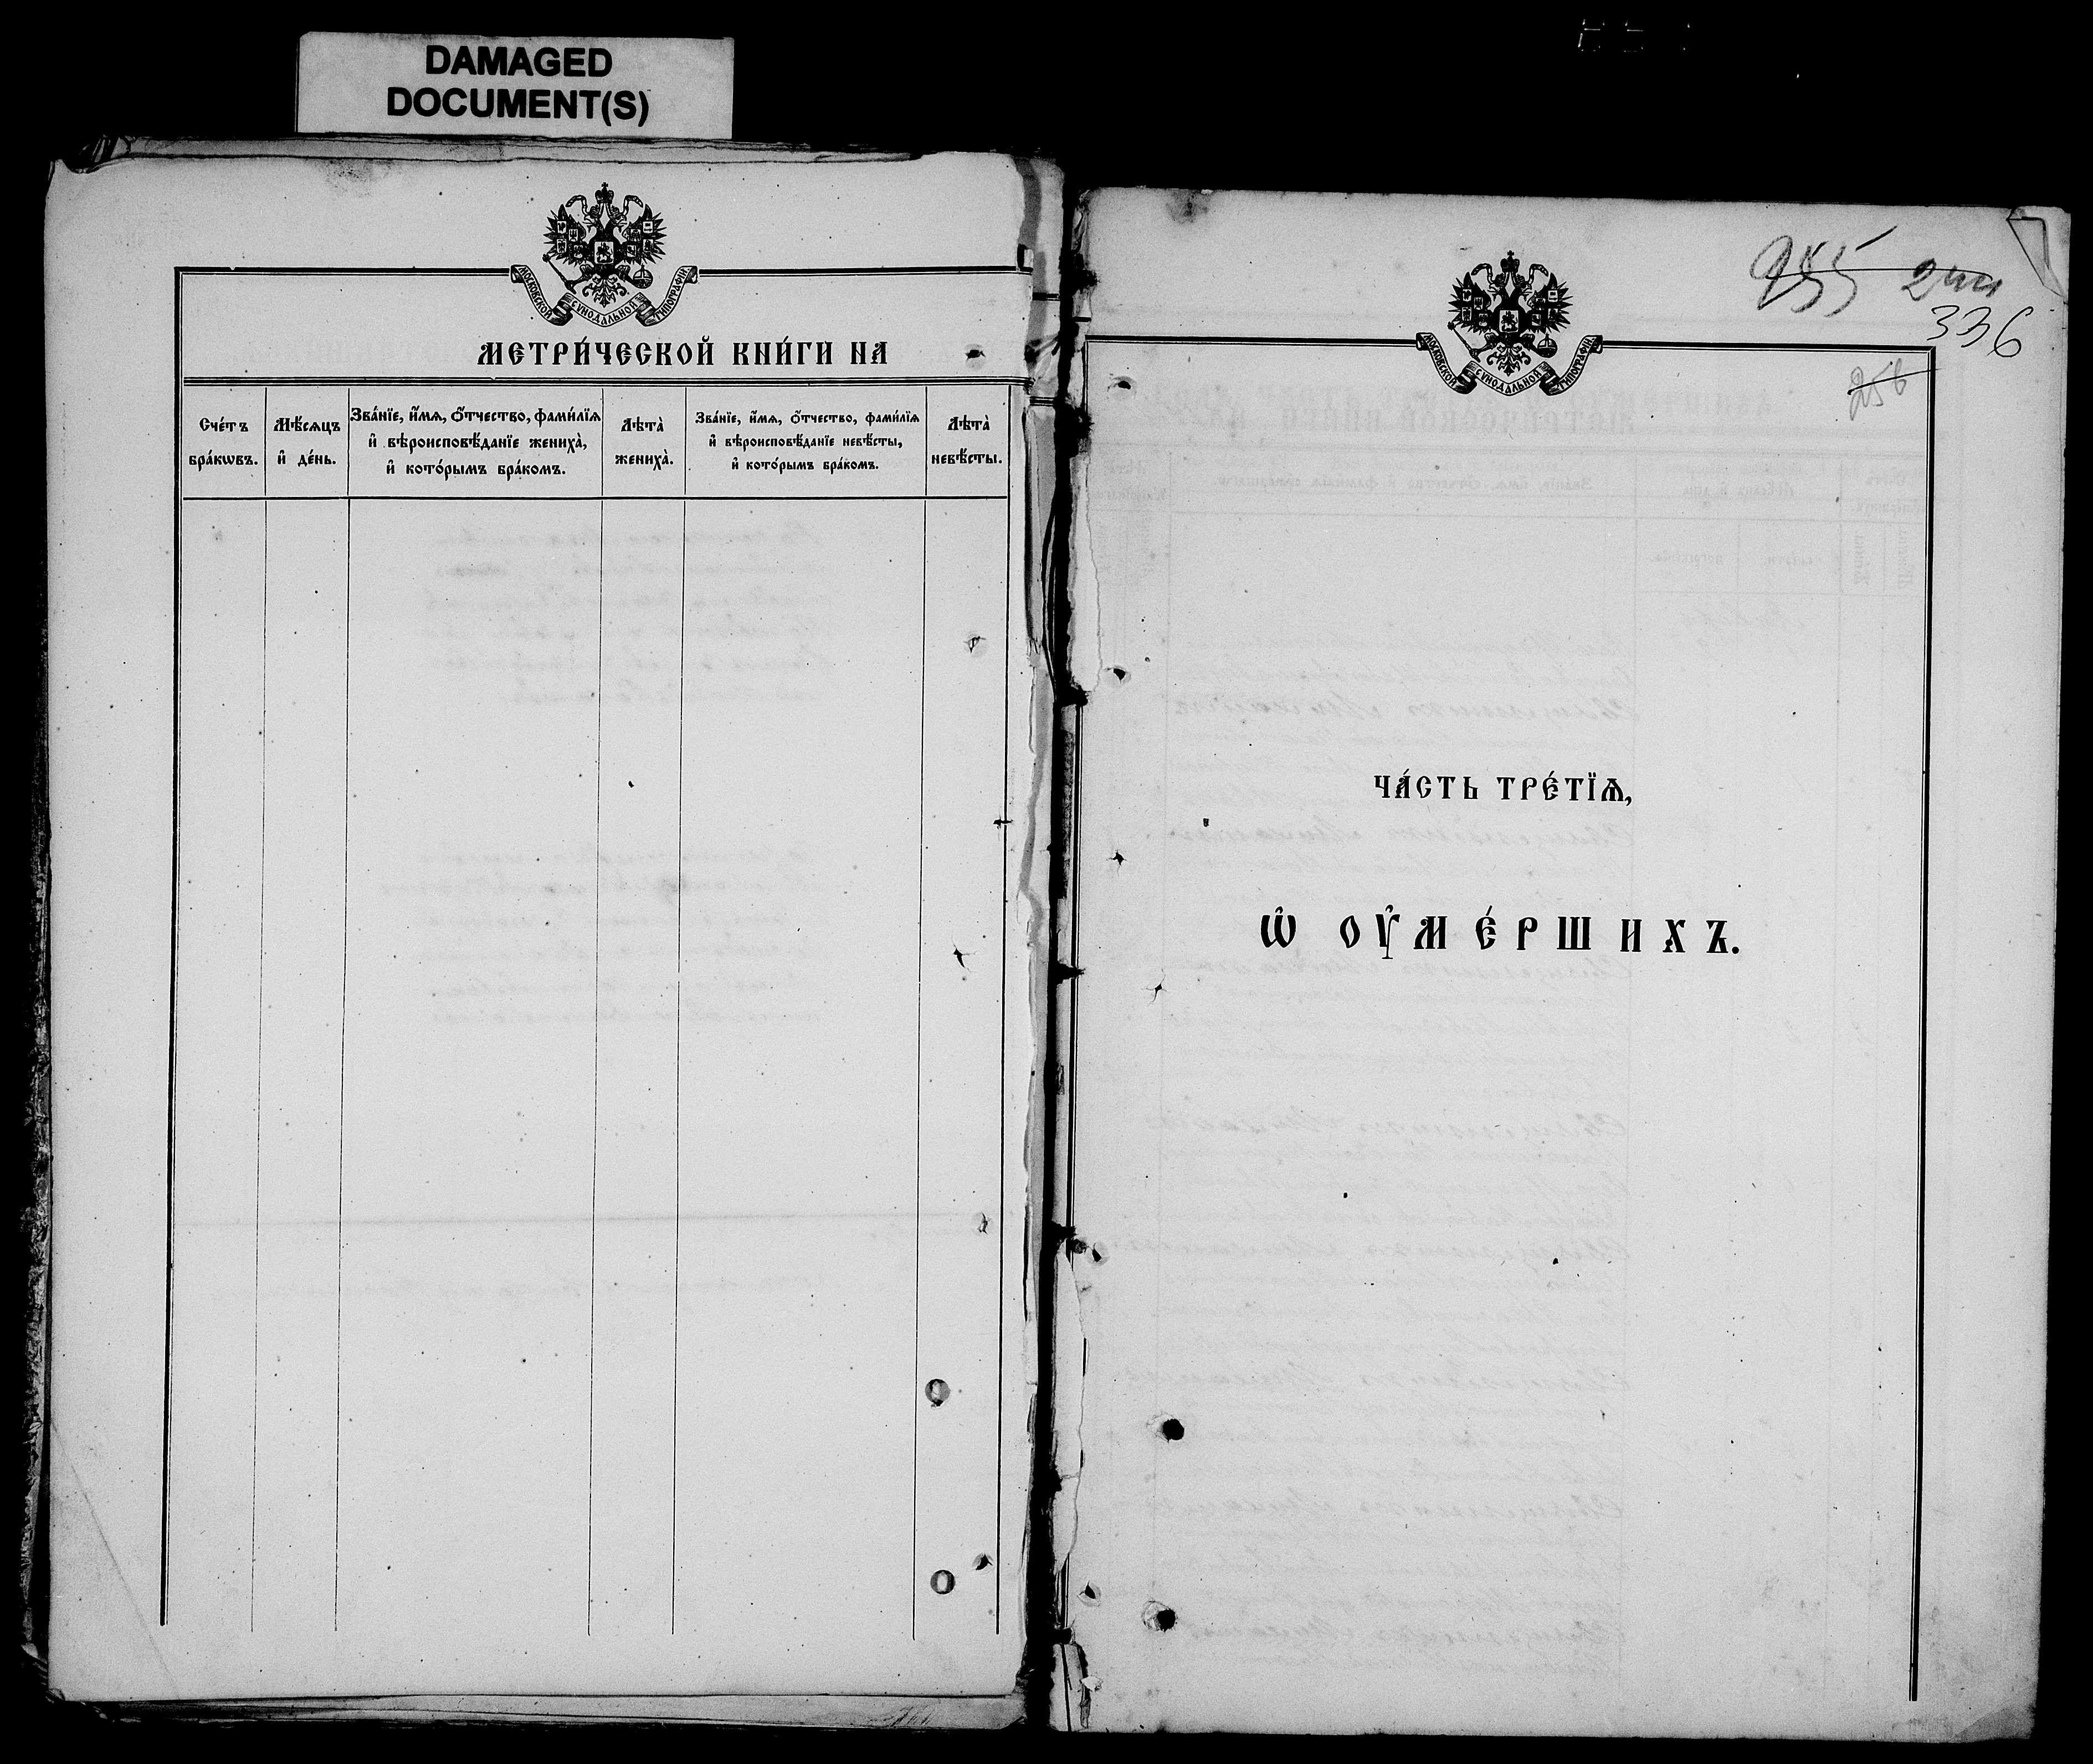 DAMAGED
DOCUMENT(S)
МОСКОВСКОЙ СѴНОДАЛЬНОЙ ТИПОГРАФІИ
МЕТРИ́ЧЕСКОЙ КНИ́ГИ НА
Сче́тъ
бра́кѡвъ.
Мѣ́сяцъ
и҆ де́нь.
Зва́нїе, и҆́мѧ, ѻ҆́тчество, фами́лїѧ
и҆ вѣроисповѣ́данїе жениха̀,
и҆ кото́рымъ бра́комъ.
Лѣта̀
жениха̀.
Зва́нїе, и҆́мѧ, ѻ҆́тчество, фами́лїѧ
и҆ вѣроисповѣ́данїе невѣ́сты,
и҆ кото́рымъ бра́комъ.
Лѣта̀
невѣ́сты.
МОСКОВСКОЙ СѴНОДАЛЬНОЙ ТИПОГРАФІИ
336
256
ЧА́СТЬ ТРЕ́ТЇѦ,
Ѡ҆ ОУ҆МЕ́РШИХЪ.